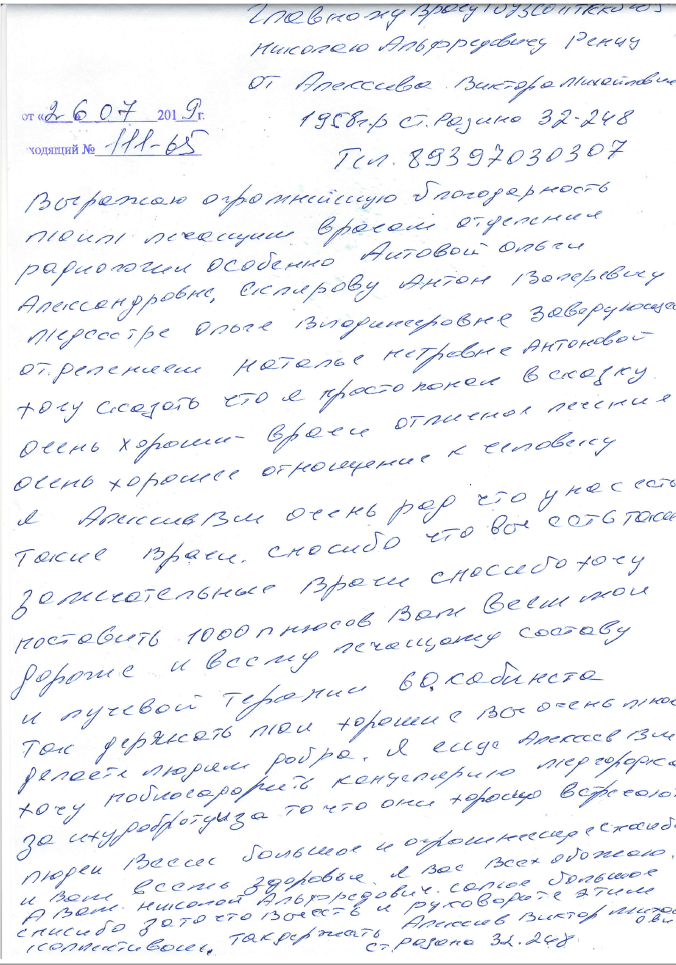 Главному врачу
Николаю Альфредовичу Ренцу
от Алексеева Виктора Михайлович
от «26 07 2019г.
1958г.р Ст. Разина 32-248
ходящий № 111-65
Тел. 89397030307
Выражаю огромнейшую благодарность
моим лечащим врачам отделения
радиологии особенно Аитовой Ольги
Александровне, Склярову Антон Валеревичу
медсестре Ольге Владимеровне Заведующе
отделением Наталье Петровне Антоновой
хочу сказать что я просто попал в сказку
очень хороши врачи отличное лечения
очень хорошее отношение к человеку
я Алексеев ВМ очень рад что у нас есть
такие врачи. спосибо что вы есть такие
замечательные врачи спосибо хочу
поставить 1000 плюсов Вам Всем мои
дорогие и всему лечащему составу
и лучевой терапии 60. кабинета
так держать мои хорошие Вы очень много
делаете людям добра. я еще Алексеев ВМ
хочу поблагодарить канцелярию медгородка
за их доброту и за то что они хорошо встречают
людей Всем большое и огромнейшее спасибо
и Вам всем здоровья. я Вас Всех обожаю.
А Вам. Николай Альфредович. самое большое
списибо зато что Вы есть и руководите этим
коллективом, так держать Алексеев Виктор Михай
ович
ст разина 32. 248